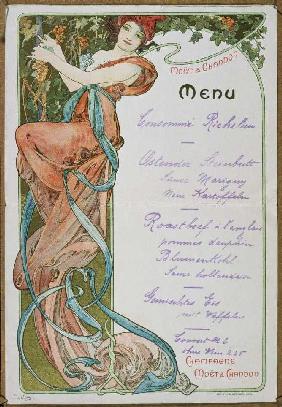 MOËT & CHANDON
MENU
Consommé Richelieu
Ostender Steinbutt
Sauce Marigny
Neue Kartoffeln
Roastbeef à l'anglais
pommes dauphin
Blumenkohl
Sauce hollandaise
Gemischtes Eis
mit Waffeln
Couvert M 6
ohne Wein
CHAMPAGNE
MOËT & CHANDON